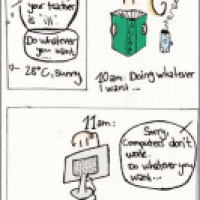 your teacher
is "ill".
Do whatever
you want...
28°C, Sunny
10am: Doing whatever
I want...
11am:
Sorry,
Computers don't
work.
Do whatever you
want...